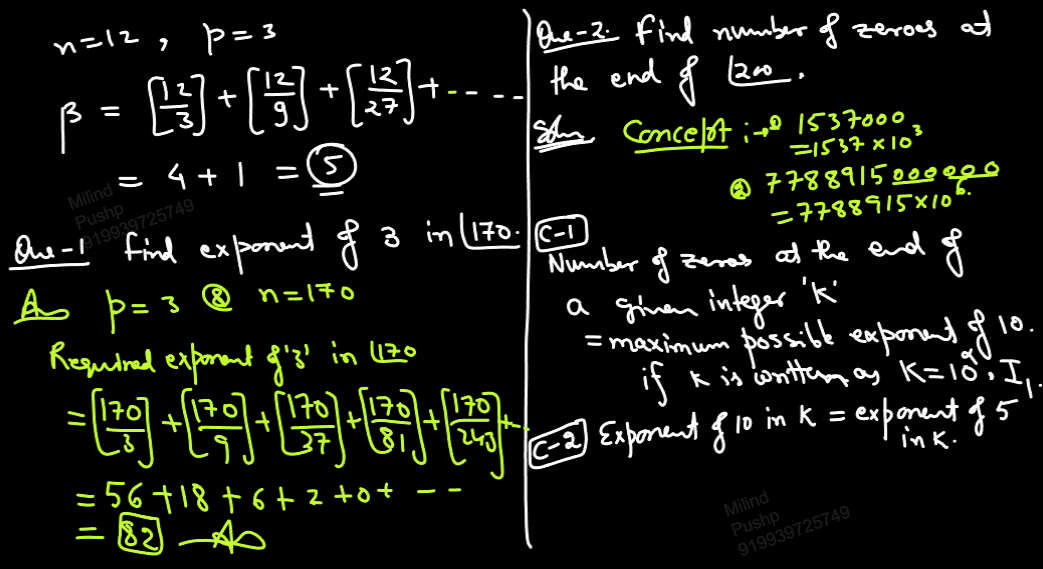 n=12, p=3
β = [12/3] + [12/9] + [12/27] + -----
= 4 + 1 = 5
Milind
Pushp
919939725749
Que-1 Find exponent of 3 in ⌊170.
A p=3 & n=170
Required exponent of '3' in ⌊170
= [170/3] + [170/9] + [170/37] + [170/81] + [170/243] + --
= 56 + 18 + 6 + 2 + 0 + --
= 82
Que-2. Find number of zeroes at
the end of ⌊200.
Soln Concept :→ ① 1537000
= 1537 × 10³
② 7788915000000
= 7788915 × 10⁶.
C-1
Number of zeros at the end of
a given integer 'K'
= maximum possible exponent of 10.
if K is written as K = 10^α · I₁.
C-2 Exponent of 10 in K = exponent of 5
in K.
Milind
Pushp
919939725749